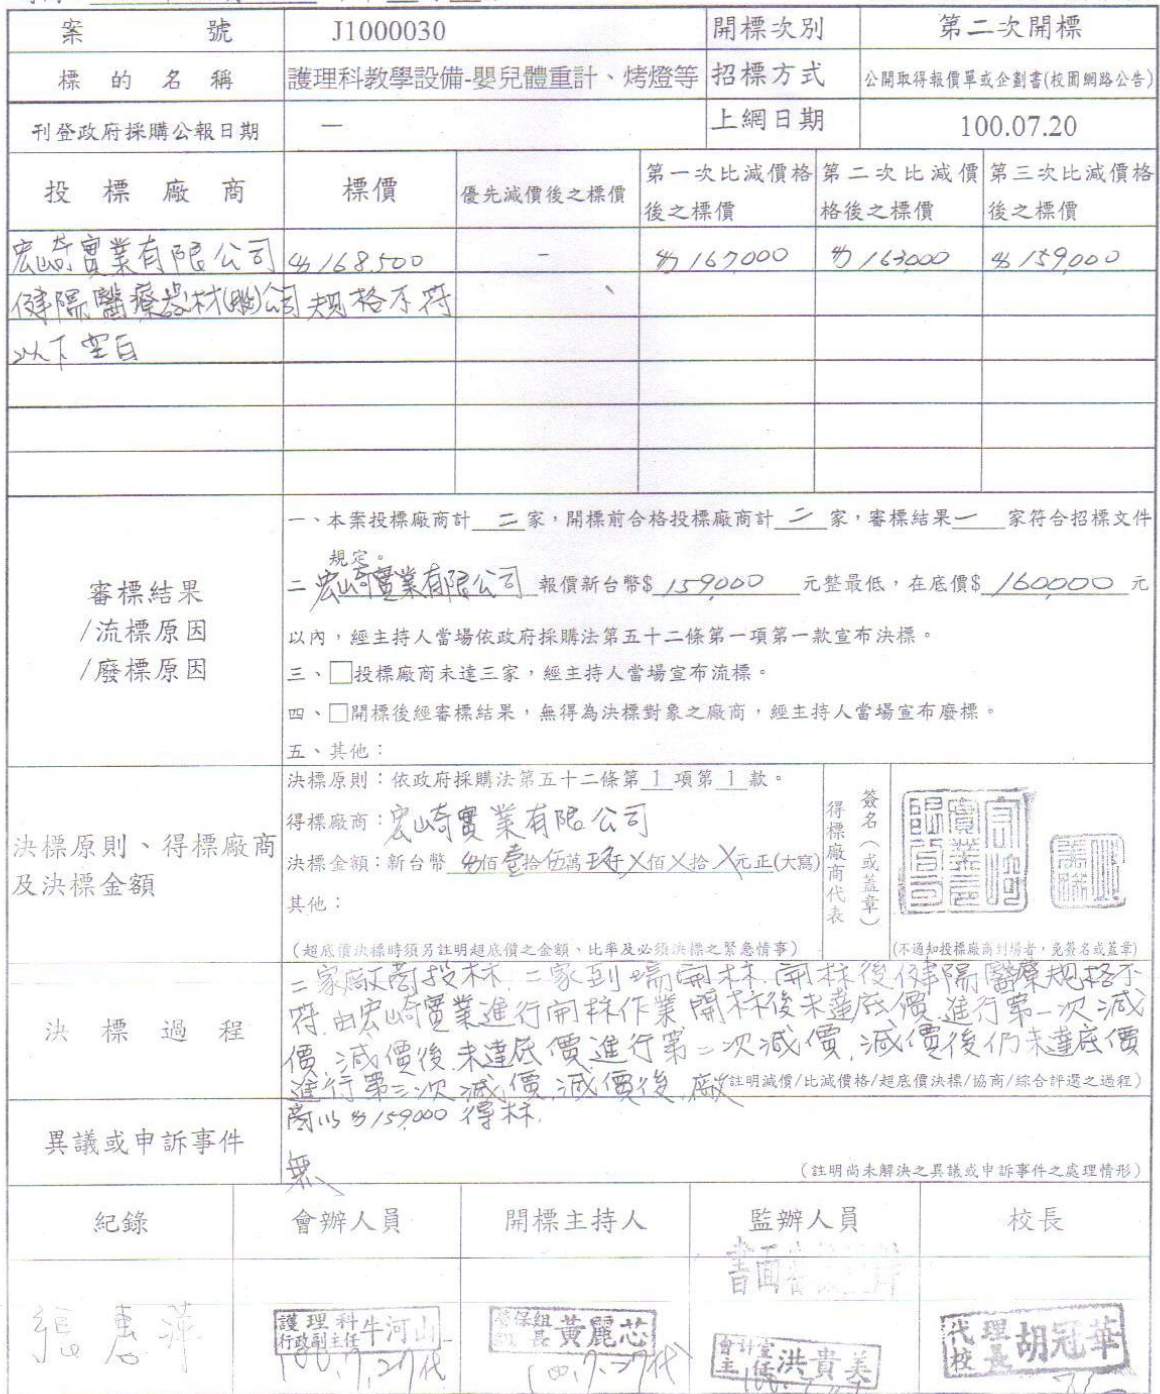 案 號 J1000030 開標次別 第二次開標
標 的 名 稱 護理科教學設備-嬰兒體重計、烤燈等 招標方式 公開取得報價單或企劃書(校園網路公告)
刊登政府採購公報日期 — 上網日期 100.07.20
投 標 廠 商 標價 優先減價後之標價 第一次比減價格後之標價 第二次比減價格後之標價 第三次比減價格後之標價
宏崎實業有限公司 168,500 - 167,000 163,000 159,000
健陽醫療器材 公司 規格不符
以下空白
審標結果
/流標原因
/廢標原因
一、本案投標廠商計 二 家,開標前合格投標廠商計 二 家,審標結果 一 家符合招標文件
規定。
二 宏崎實業有限公司 報價新台幣$ 159,000 元整最低,在底價$ 160,000 元
以內,經主持人當場依政府採購法第五十二條第一項第一款宣布決標。
三、□投標廠商未達三家,經主持人當場宣布流標。
四、□開標後經審標結果,無得為決標對象之廠商,經主持人當場宣布廢標。
五、其他:
決標原則、得標廠商
及決標金額
決標原則:依政府採購法第五十二條第 1 項第 1 款。
得標廠商:宏崎實業有限公司
決標金額:新台幣 佰壹拾伍萬玖仟X佰X拾X元正(大寫)
其他:
(超底價決標時須另註明超底價之金額、比率及必須決標之緊急情事)
得標廠商代表
簽名(或蓋章)
(不通知投標廠商到場者,免簽名或蓋章)
決 標 過 程
二家廠商投标,二家到場開标,開标後健陽醫療規格不
符,由宏崎實業進行開标作業,開标後未達底價,進行第一次減
價,減價後未達底價,進行第二次減價,減價後仍未達底價
進行第三次減價,減價後,廠
(註明減價/比減價格/超底價決標/協商/綜合評選之過程)
商以 159,000 得标.
異議或申訴事件
無
(註明尚未解決之異議或申訴事件之處理情形)
紀錄 會辦人員 開標主持人 監辦人員 校長
張惠萍
護理科
行政副主任 牛河山
100.7.27代
組長 黃麗芯
100.7.27代
會計室
主任 洪貴美
代理
校長 胡冠華